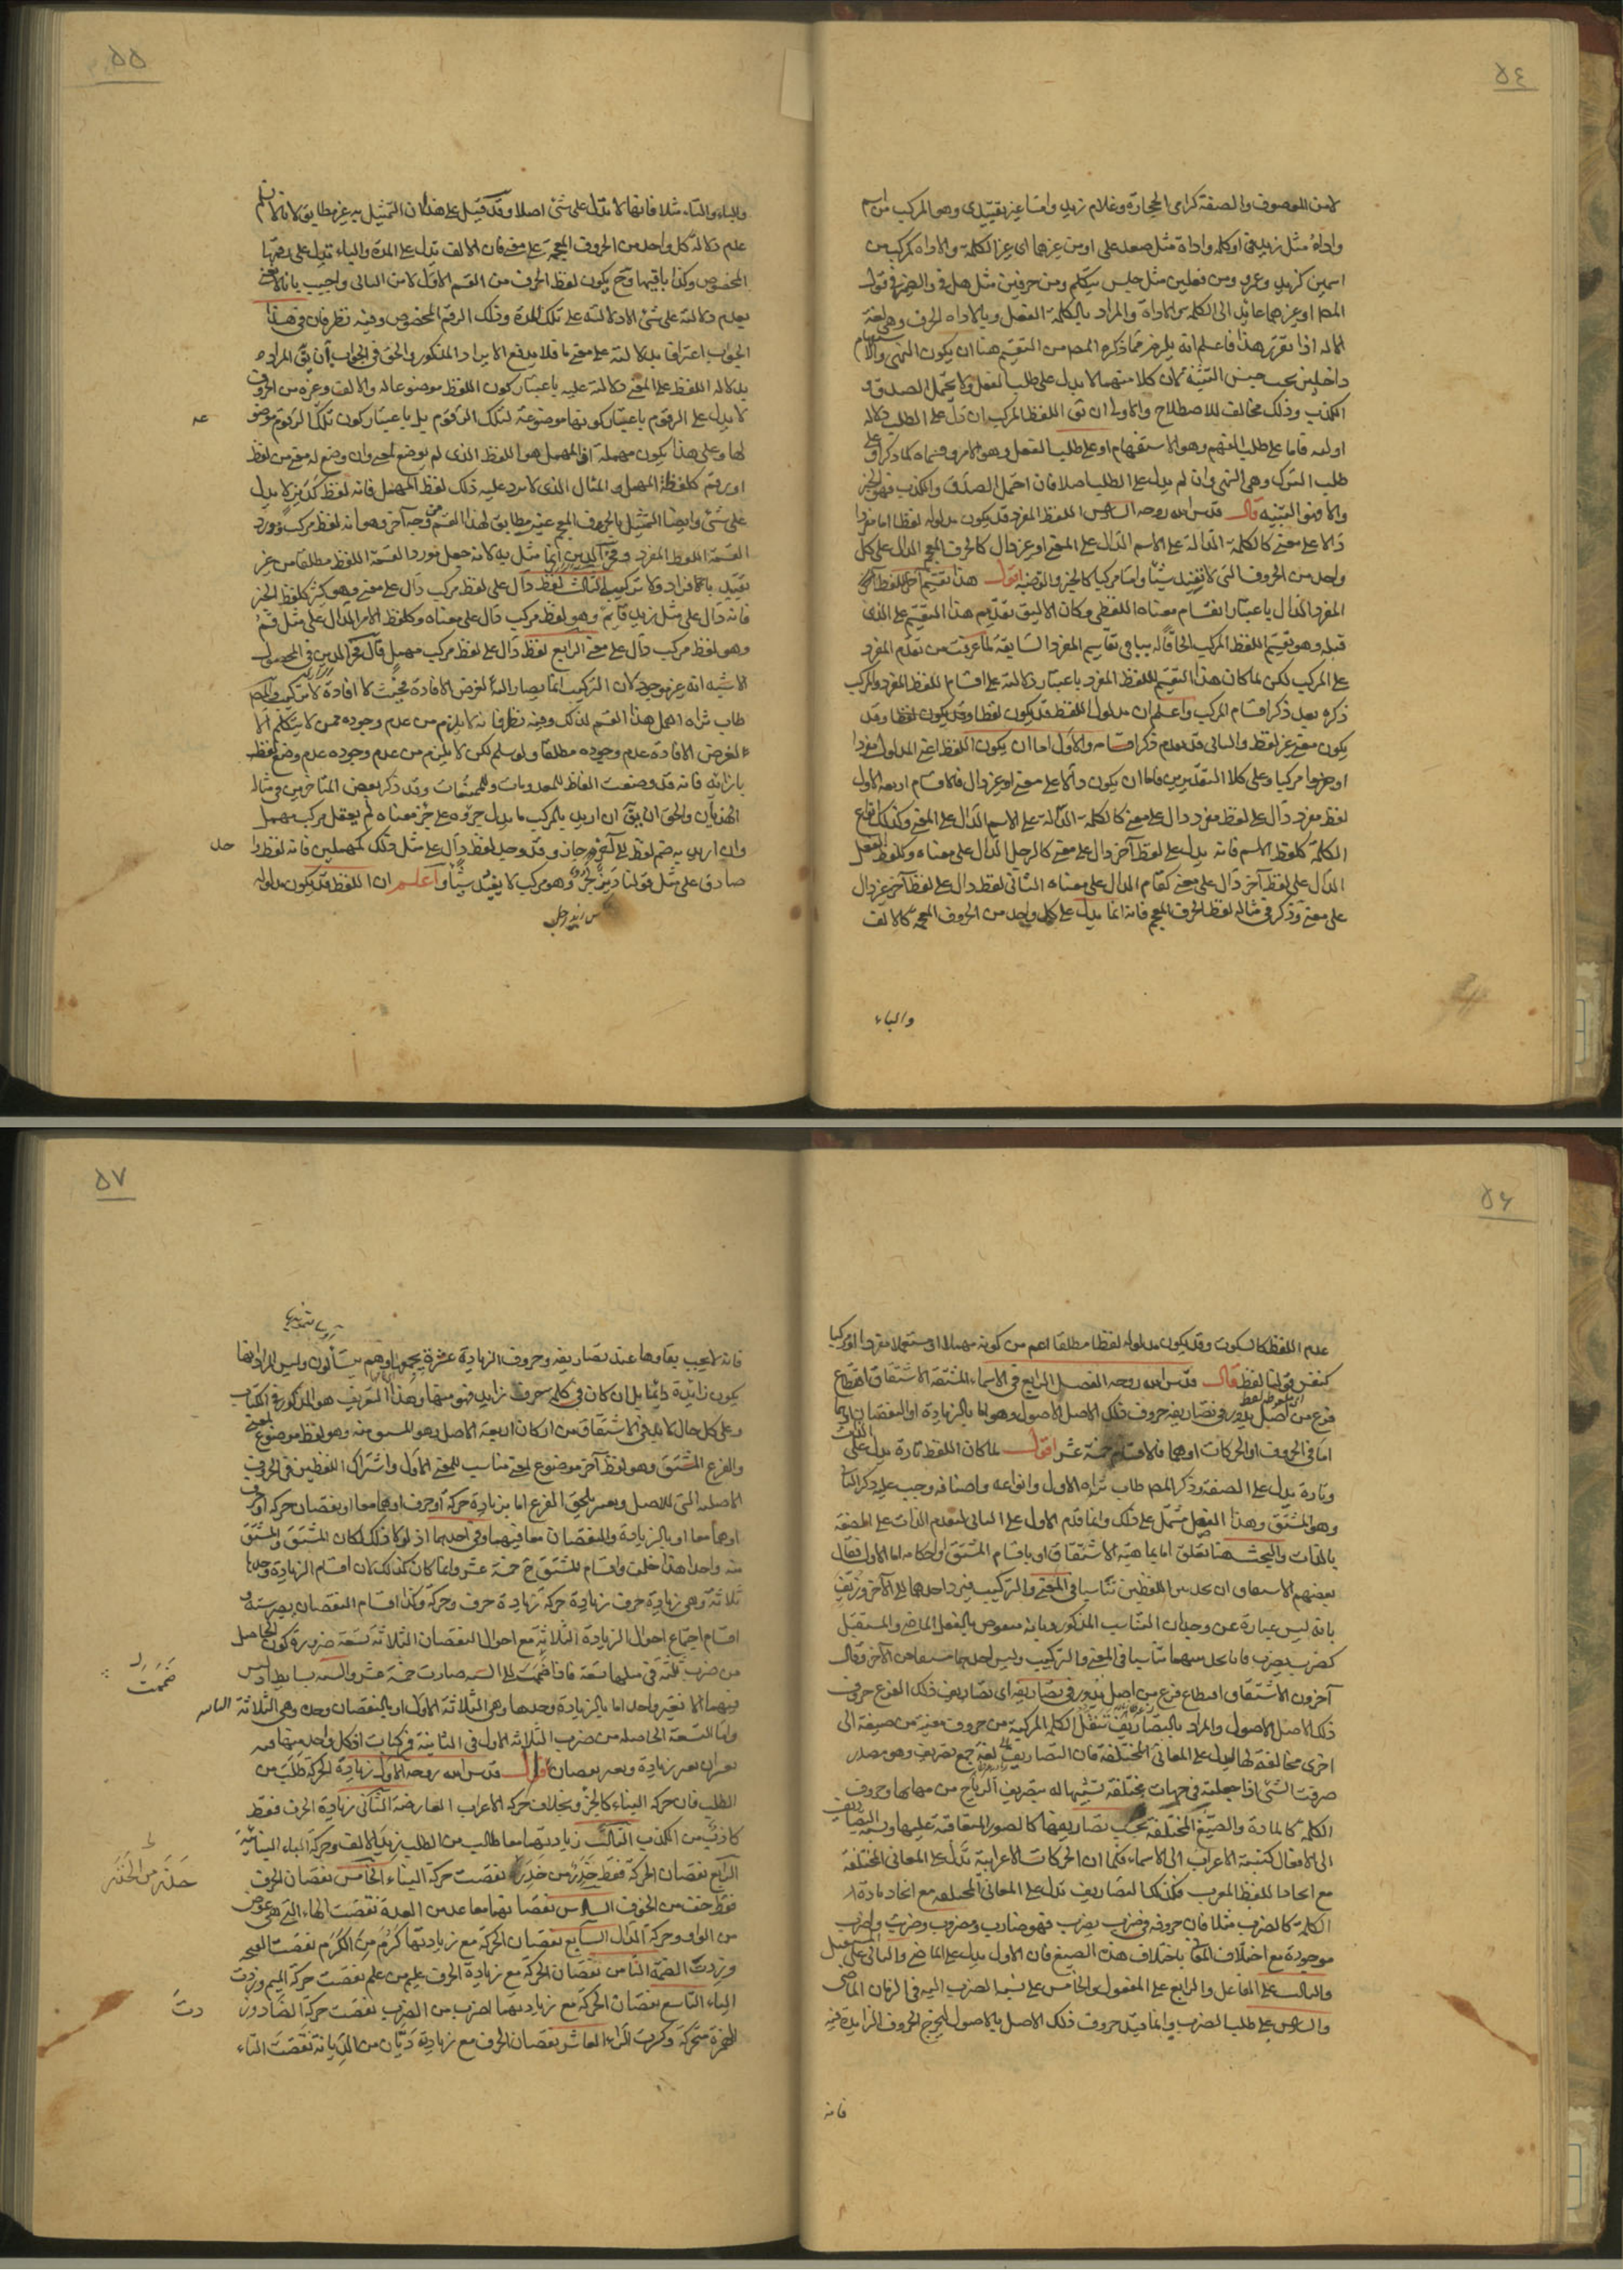 ٥٤
لامن الموصوف والصفة كرامى الحجارة وغلام زيد واما غير تقييدى وهو المركب من اسم
واداة مثل زيد فى او كلمة واداة مثل صعد على او من غيرهما اى غير الكلمة والاداه كمركب من
اسمين كزيد وعمرو ومن فعلين مثل جلس يتكلم ومن حرفين مثل هل فى والضمير فى قول
المص او غيرهما عائد الى الكلمة والاداة والمراد بالكلمة الفعل وبالاداه الحرف وهى لغة
الاله اذا تقرر هذا فاعلم انه يلزم مما ذكره المص من التقسيم هنا ان يكون النهى والاستفهام
داخلين تحت جنس التنبيه لان كلا منهما لا يدل على طلب الفعل ولا يحتمل الصدق و
الكذب وذلك مخالف للاصطلاح والاولى ان يق اللفظ المركب ان دل على الطلب دلالة
اوليه فاما على طلب الفهم وهو الاستفهام او على طلب الفعل وهو الامر وقسماه كما ذكر او على
طلب الترك وهى النهى وان لم يدل على الطلب اصلا فان احتمل الصدق والكذب فهو الخبر
والا فهو التنبيه قال قدس الله روحه السادس اللفظ المفرد قد يكون مدلوله لفظا اما مفردا
دالا على معنى كالكلمة الدالة على الاسم الدال على المعنى او غير دال كالحرف المعجم الدال على كل
واحد من الحروف التى لا تفيد شيئا واما مركبا كالخبر والقضية اقول هذا تقسيم آخر للفظ
المفرد الدال باعتبار انقسام معناه اللفظى وكان الاليق تقديم هذا التقسيم على الذى
قبله وهو تقسيم اللفظ المركب الحاقا له بباقى تقاسيم المفرد السابقة لما عرفت من تقدم المفرد
على المركب لكن لما كان هذا التقسيم للفظ المفرد باعتبار دلالته على اقسام للفظ المفرد والمركب
ذكره بعد ذكر اقسام المركب واعلم ان مدلول اللفظ قد يكون لفظا وقد يكون لفظا وقد
يكون معنى غير لفظ والثانى قد تقدم ذكر اقسامه والاول اما ان يكون اللفظ اعنى المدلول مفردا
او مركبا وعلى كلا التقديرين فاما ان يكون دالا على معنى او غير دال فالاقسام اربعة الاول
لفظ مفرد دال على لفظ مفرد دال على معنى كالكلمة الدالة على الاسم الدال على المعنى وكذلك انواع
الكلمة كلفظ الاسم فانه يدل على لفظ آخر دال على معنى كالرجل الدال على معناه وكلفظ الفعل
الدال على لفظ آخر دال على معنى كقام الدال على معناه الثانى لفظ دال على لفظ آخر غير دال
على معنى وذكر فى مثاله لفظ الحرف المعجم فانه انما يدل على كل واحد من الحروف المعجمة كالالف
والباء
٥٥
والباء والتاء مثلا فانها لا تدل على شئ اصلا وقد قيل على هذا ان التمثيل به غير مطابق لانا لا نسلم
عدم دلالة كل واحد من الحروف المعجمة على معنى فان الالف تدل على المدة والباء تدل على رقمها
المخصوص وكذا باقيها وح يكون لفظ الحرف من القسم الاول لا من الثانى واجيب بانا لا نعنى
بعدم دلالته على شئ الا دلالته على تلك المدة وذلك الرقم المخصوص وفيه نظر فان فى هذا
الجواب اعترافا بدلالته على معنى ما فلا يدفع الايراد المذكور والحق فى الجواب ان يق المراد
بدلالة اللفظ على المعنى دلالته عليه باعتبار كون اللفظ موضوعا له والالف وغيره من الحروف
لا يدل على الرقوم باعتبار كونها موضوعة لتلك الرقوم بل باعتبار كون تلك الرقوم موضوعة
لها وعلى هذا يكون مهملة اذ المهمل هو اللفظ الذى لم يوضع لمعنى وان وضع له معنى من لفظ
او رقم كلفظة المهمل والمثال الذى لا يرد عليه ذلك لفظ المهمل فانه لفظ كديز لا يدل
على شئ وايضا التمثيل بالحروف المعجم غير مطابق لهذا القسم من وجه آخر وهو انه لفظ مركب ومورد
القسمة اللفظ المفرد وفخر الدين انما مثل به لانه جعل مورد القسمة اللفظ مطلقا من غير
تقييد بالافراد ولا تركيب الثالث لفظ دال على لفظ مركب دال على معنى وهو كثير كلفظ الخبر
فانه دال على مثل زيد قائم وهو لفظ مركب دال على معناه وكلفظ الامر الدال على مثل قم
وهو لفظ مركب دال على معنى الرابع لفظ دال على لفظ مركب مهمل قال فخر الدين فى المحصول
الاشبه انه غير موجود لان التركيب انما يصار اليه لغرض الافادة فحيث لا افادة لا تركيب والمص
طاب ثراه اهمل هذا القسم لذلك وفيه نظر فانه لا يلزم من عدم وجوده ممن لا يتكلم الا
لغرض الافادة عدم وجوده مطلقا ولو سلم لكن لا يلزم من عدم وجوده عدم وضع لفظ
بازائه فانه قد وضعت الفاظ للمعدومات والممتنعات وقد ذكر بعض المتاخرين فى مثاله
الهذيان والحق ان يق ان اريد بالمركب ما يدل جزؤه على جزء معناه لم يعقل مركب مهمل
وان اريد به ضم لفظ الى آخر جاز وقد وجد لفظ دال على مثل ذلك كمهملين فانه لفظ
صادق على مثل قولنا ديز وهو مركب لا يفيد شيئا واعلم ان اللفظ قد يكون مدلوله
عه
حل
٥٦
عدم اللفظ كالسكوت وقد يكون مدلوله لفظا مطلقا اعم من كونه مهملا او مستعملا مفردا او مركبا
كنفس قولنا لفظ قال قدس الله روحه الفصل الرابع فى الاسماء المشتقة الاشتقاق اقتطاع
فرع من اصل يدور فى تصاريفه حروف ذلك الاصل الاصول وهو اما بالزيادة او النقصان او بهما
اما فى الحروف او الحركات او هما فالاقسام خمسة عشر اقول لما كان اللفظ تارة يدل على الذات
وتارة يدل على الصفة وذكر المص طاب ثراه الاول وانواعه واصنافه وجب عليه ذكر الثانى
وهو المشتق وهذا الفصل مشتمل على ذلك وانما قدم الاول على الثانى لتقدم الذات على الصفة
بالذات والبحث هنا تعلق اما بماهية الاشتقاق او باقسام المشتق او احكامه اما الاول فقال
بعضهم الاشتقاق ان تجد بين اللفظين تناسبا فى المعنى والتركيب فترد احدهما الى الآخر وزيف
بانه ليس عبارة عن وجدان التناسب المذكور وبانه منقوض بالفعل الماضى والمستقبل
كضرب يضرب فانا نجد بينهما تناسبا فى المعنى والتركيب وليس احدهما مشتقا من الآخر وقال
آخرون الاشتقاق اقتطاع فرع من اصل يدور فى تصاريفه اى تصاريف ذلك الفرع حروف
ذلك الاصل الاصول والمراد بالتصاريف تنقل الكلمة المركبة من حروف معينة من صيغة الى
اخرى مخالفة لها ليدل على المعانى المختلفة فان التصاريف لغة جمع تصريف وهو مصدر
صرفت الشئ اذا جعلته فى جهات مختلفة تشبيها له بتصريف الرياح من مهابها وحروف
الكلمة كالمادة والصيغ المختلفة بحسب تصاريفها كالصور المتعاقبة عليها ونسبة التصاريف
الى الافعال كنسبة الاعراب الى الاسماء فكما ان الحركات الاعرابية تدل على المعانى المختلفة
مع اتحاد اللفظ المعرب فكذلك التصاريف تدل على المعانى المختلفة مع اتحاد مادة
الكلمة كالضرب مثلا فان حروفه فى ضرب يضرب فهو ضارب ومضروب وضرب واضرب
موجودة مع اختلاف المعانى باختلاف هذه الصيغ فان الاول يدل على الماضى والثانى على المستقبل
والثالث على الفاعل والرابع على المفعول والخامس على نسبة الضرب اليه فى الزمان الماضى
والسادس على طلب الضرب وانما قيد حروف ذلك الاصل بالاصول ليخرج الحروف الزايدة فيه
فانه
٥٧
فانه لا يجب بقاؤها عند تصاريفه وحروف الزيادة عشرة يجمعها اوهم يتسألون وليس المراد انها
يكون زائدة دائما بل ان كان فى كلمة حرف زايد فهو منها وهذا التعريف هو المذكور فى الكتاب
وعلى كل حال لا بد فى الاشتقاق من اركان اربعة الاصل وهو المشتق منه وهو لفظ موضوع لمعنى
والفرع المشتق وهو لفظ آخر موضوع لمعنى مناسب للمعنى الاول واشتراك اللفظين فى الحروف
الاصلية التى للاصل وتغيير يلحق الفرع اما بزيادة حركة او حرف او هما معا او نقصان حركة او حرف
او هما معا او بالزيادة والنقصان معا فيهما وفى احدهما اذ لولا ذلك لكان المشتق والمشتق
منه واحدا هذا خلف واقسام المشتق ح خمسة عشر وانما كان كذلك لان اقسام الزيادة وحدها
ثلاثة وهى زيادة حرف زيادة حركة زيادة حرف وحركة وكذا اقسام النقصان يصير ستة و
اقسام اجتماع احوال الزيادة الثلاثة مع احوال النقصان الثلاثة تسعة ضرورة كون الحاصل
من ضرب ثلثة فى مثلها تسعة فاذا ضمت الى الستة صارت خمسة عشر والستة بسايط اذ ليس
فيهما الا تغيير واحد اما بالزيادة وحدها وهى الثلاثة الاول او بالنقصان وحده وهى الثلاثة
واما التسعة الحاصلة من ضرب الثلاثة الاول فى الثانية فمركبات اذ كل واحد منها فيه
تغييران تغيير زيادة وتغيير نقصان قال قدس الله روحه الاول زيادة الحركة طلب من
الطلب فان حركة البناء كالجزء وبخلاف حركة الاعراب العارضة الثانى زيادة الحرف فقط
كاذب من الكذب الثالث زيادتهما معا طالب من الطلب زيد الالف وحركة البناء
الرابع نقصان الحركة فقط حذر من حذر نقصت حركة البناء الخامس نقصان الحرف
فقط خف من الخوف السادس نقصانهما معا عد من العدة نقصت الهاء التى هى عوض
من الواو وحركة الدال السابع نقصان الحركة مع زيادتها كرم من الكرم نقصت الفتحة
وزيدت الضمة الثامن نقصان الحركة مع زيادة الحرف عليم من علم نقصت حركة الميم وزيدت
الياء التاسع نقصان الحركة مع زيادتهما اضرب من الضرب نقصت حركة الضاد وزيد
الهمزة متحركة وكسرت الراء العاشر نقصان الحرف مع زيادته ديان من الديانة نقصت التاء
ضممت
الثانية
دت